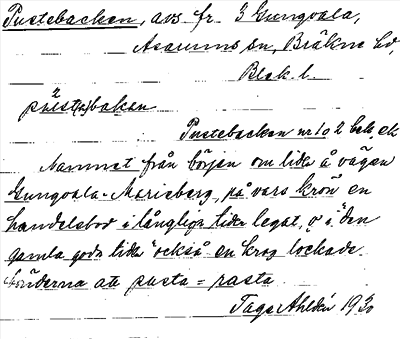 Pustebacken, avs. fr. 3 Gungvala,
Asarums sn, Bräkne hd,
Blek. l.
Pustebacken nr 1 o 2 bek. ek
Namnet från början om lider å vägen
Gungvala-Marieberg, på vars krön en
handelsbod i långliga tider legat, o i "den
gamla goda tiden" också en krog lockade
bönderna att pusta = rasta.
Tage Ahldén 1930